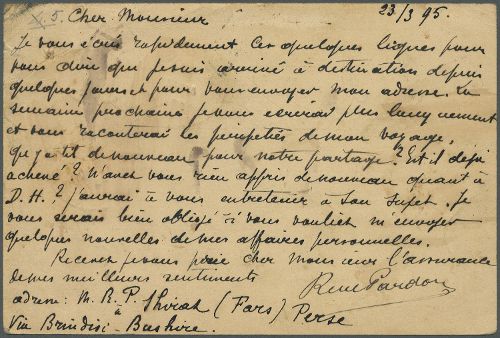 5. Cher Monsieur 23/3 95.
Je vous écris rapidement ces quelques lignes pour
vous dire que je suis arrivé à destination depuis
quelques jours et pour vous envoyer mon adresse. La
semaine prochaine je vous écrirai plus longuement
et vous raconterai les péripéties de mon voyage.
Qu'y a-t-il de nouveau pour notre partage? Est-il déjà
achevé? N'avez vous rien appris de nouveau quant à
D.H.? J'aurai à vous entretenir à son sujet. Je
vous serais bien obligé si vous vouliez m'envoyer
quelques nouvelles de mes affaires personnelles.
Recevez je vous prie cher Monsieur l'assurance
de mes meilleurs sentiments
René Pardon
adresse: M. R. P. à Shiraz (Fars) Perse
Via Brindisi - Bushire.